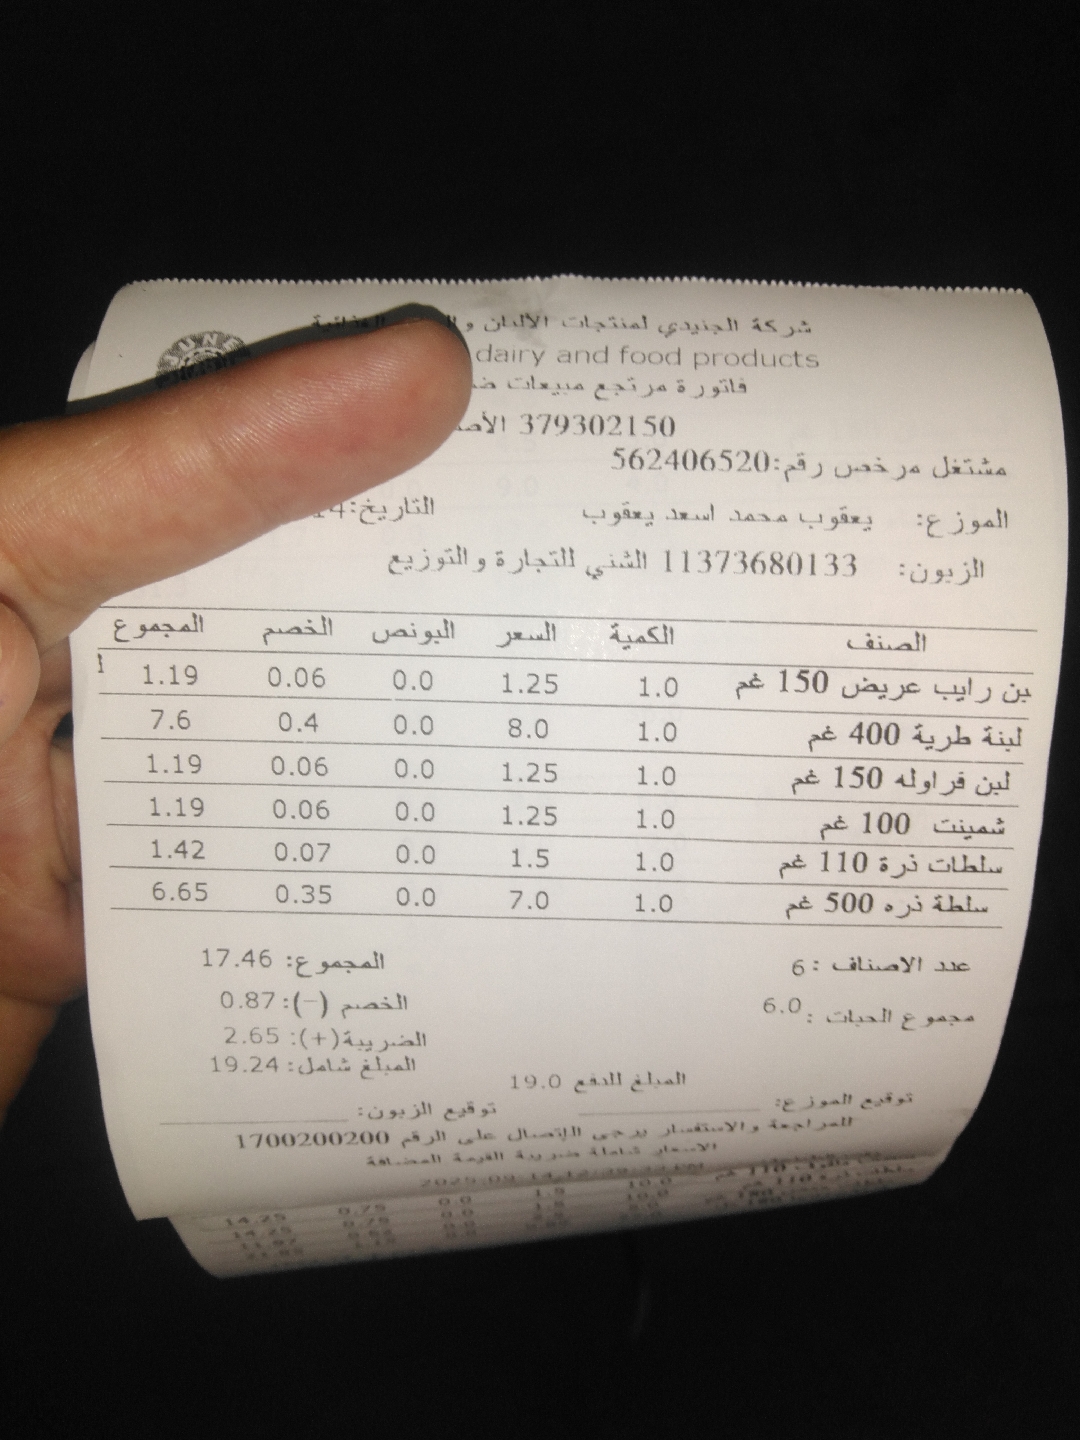 JUNE
شركة الجنيدي لمنتجات الألبان و الغذائية
dairy and food products
فاتورة مرتجع مبيعات
379302150
مشتغل مرخص رقم:562406520
الموزع: يعقوب محمد اسعد يعقوب التاريخ:
الزبون: 11373680133 الشني للتجارة والتوزيع
الصنف الكمية السعر البونص الخصم المجموع
بن رايب عريض 150 غم 1.0 1.25 0.0 0.06 1.19
لبنة طرية 400 غم 1.0 8.0 0.0 0.4 7.6
لبن فراوله 150 غم 1.0 1.25 0.0 0.06 1.19
شمينت 100 غم 1.0 1.25 0.0 0.06 1.19
سلطات ذرة 110 غم 1.0 1.5 0.0 0.07 1.42
سلطة ذره 500 غم 1.0 7.0 0.0 0.35 6.65
عدد الاصناف :6 المجموع: 17.46
مجموع الحبات :6.0 الخصم (-): 0.87
الضريبة(+): 2.65
المبلغ شامل: 19.24
المبلغ للدفع 19.0
توقيع الموزع: توقيع الزبون:
للمراجعة والاستفسار يرجى الإتصال على الرقم 1700200200
الاسعار شاملة ضريبة القيمة المضافة
10.0 1.5 0.0 0.75 14.25
14.25